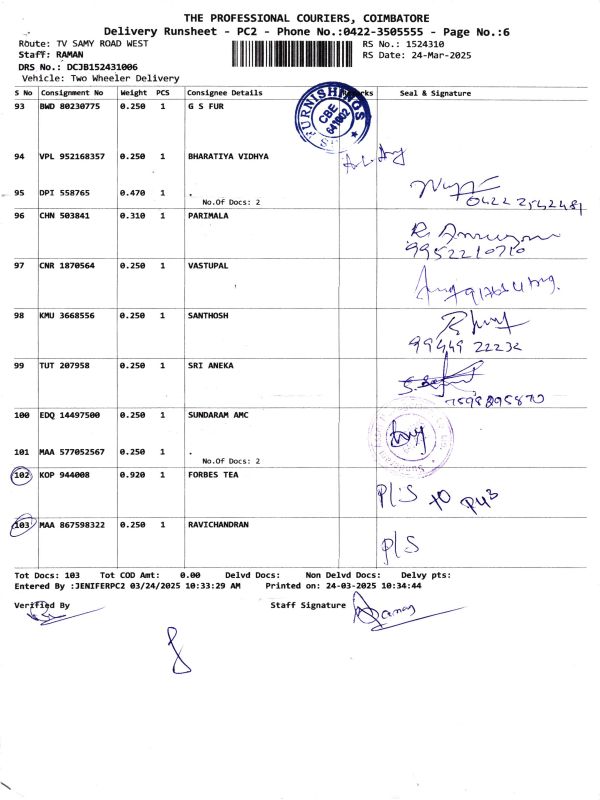 THE PROFESSIONAL COURIERS, COIMBATORE
Delivery Runsheet - PC2 - Phone No.:0422-3505555 - Page No.:6
Route: TV SAMY ROAD WEST RS No.: 1524310
Staff: RAMAN RS Date: 24-Mar-2025
DRS No.: DCJB152431006
Vehicle: Two Wheeler Delivery
S No Consignment No Weight PCS Consignee Details Seal & Signature
93 BWD 80230775 0.250 1 G S FUR
FURNISHINGS
CBE
641002
94 VPL 952168357 0.250 1 BHARATIYA VIDHYA
95 DPI 558765 0.470 1 .
No.Of Docs: 2
0422 2542481
96 CHN 503841 0.310 1 PARIMALA
9952210710
97 CNR 1870564 0.250 1 VASTUPAL
98 KMU 3668556 0.250 1 SANTHOSH
99449 22232
99 TUT 207958 0.250 1 SRI ANEKA
7598895870
100 EDQ 14497500 0.250 1 SUNDARAM AMC
101 MAA 577052567 0.250 1 .
No.Of Docs: 2
102 KOP 944008 0.920 1 FORBES TEA
P/S to
103 MAA 867598322 0.250 1 RAVICHANDRAN
P/S
Tot Docs: 103 Tot COD Amt: 0.00 Delvd Docs: Non Delvd Docs: Delvy pts:
Entered By :JENIFERPC2 03/24/2025 10:33:29 AM Printed on: 24-03-2025 10:34:44
Verified By Staff Signature